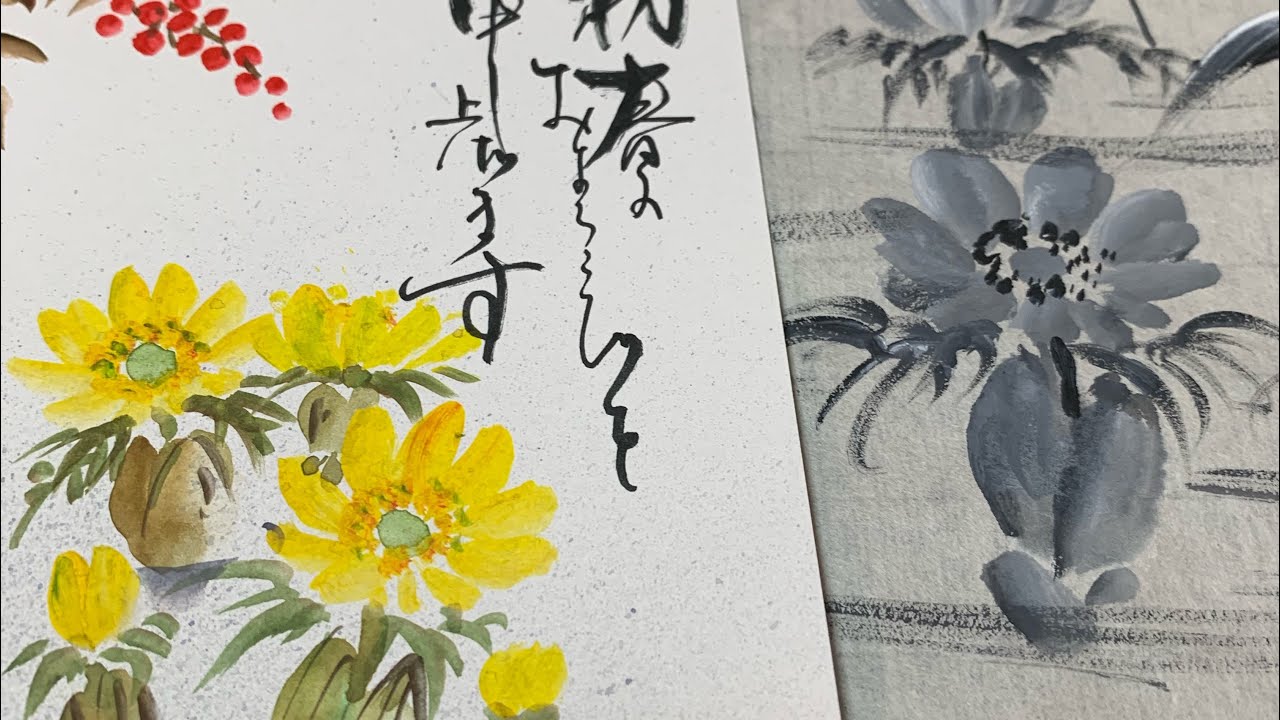 初春の
およろこびを
申し上げます